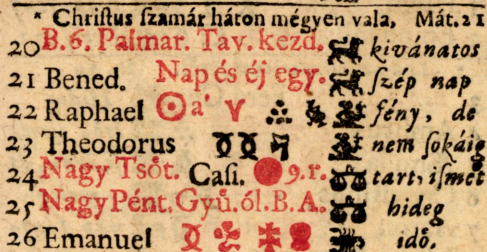 * Chriſtus ſzamár háton mégyen vala, Mát. 21
20 B. 6. Palmar. Tav. kezd. kivánatos
21 Bened. Nap és éj egy. ſzép nap
22 Raphael ☉ a' ♈ fény, de
23 Theodorus nem ſokáig
24 Nagy Tsöt. Caſi. 9. r. tart, iſmét
25 Nagy Pént. Gyü. ól. B. A. hideg
26 Emanuel idő.